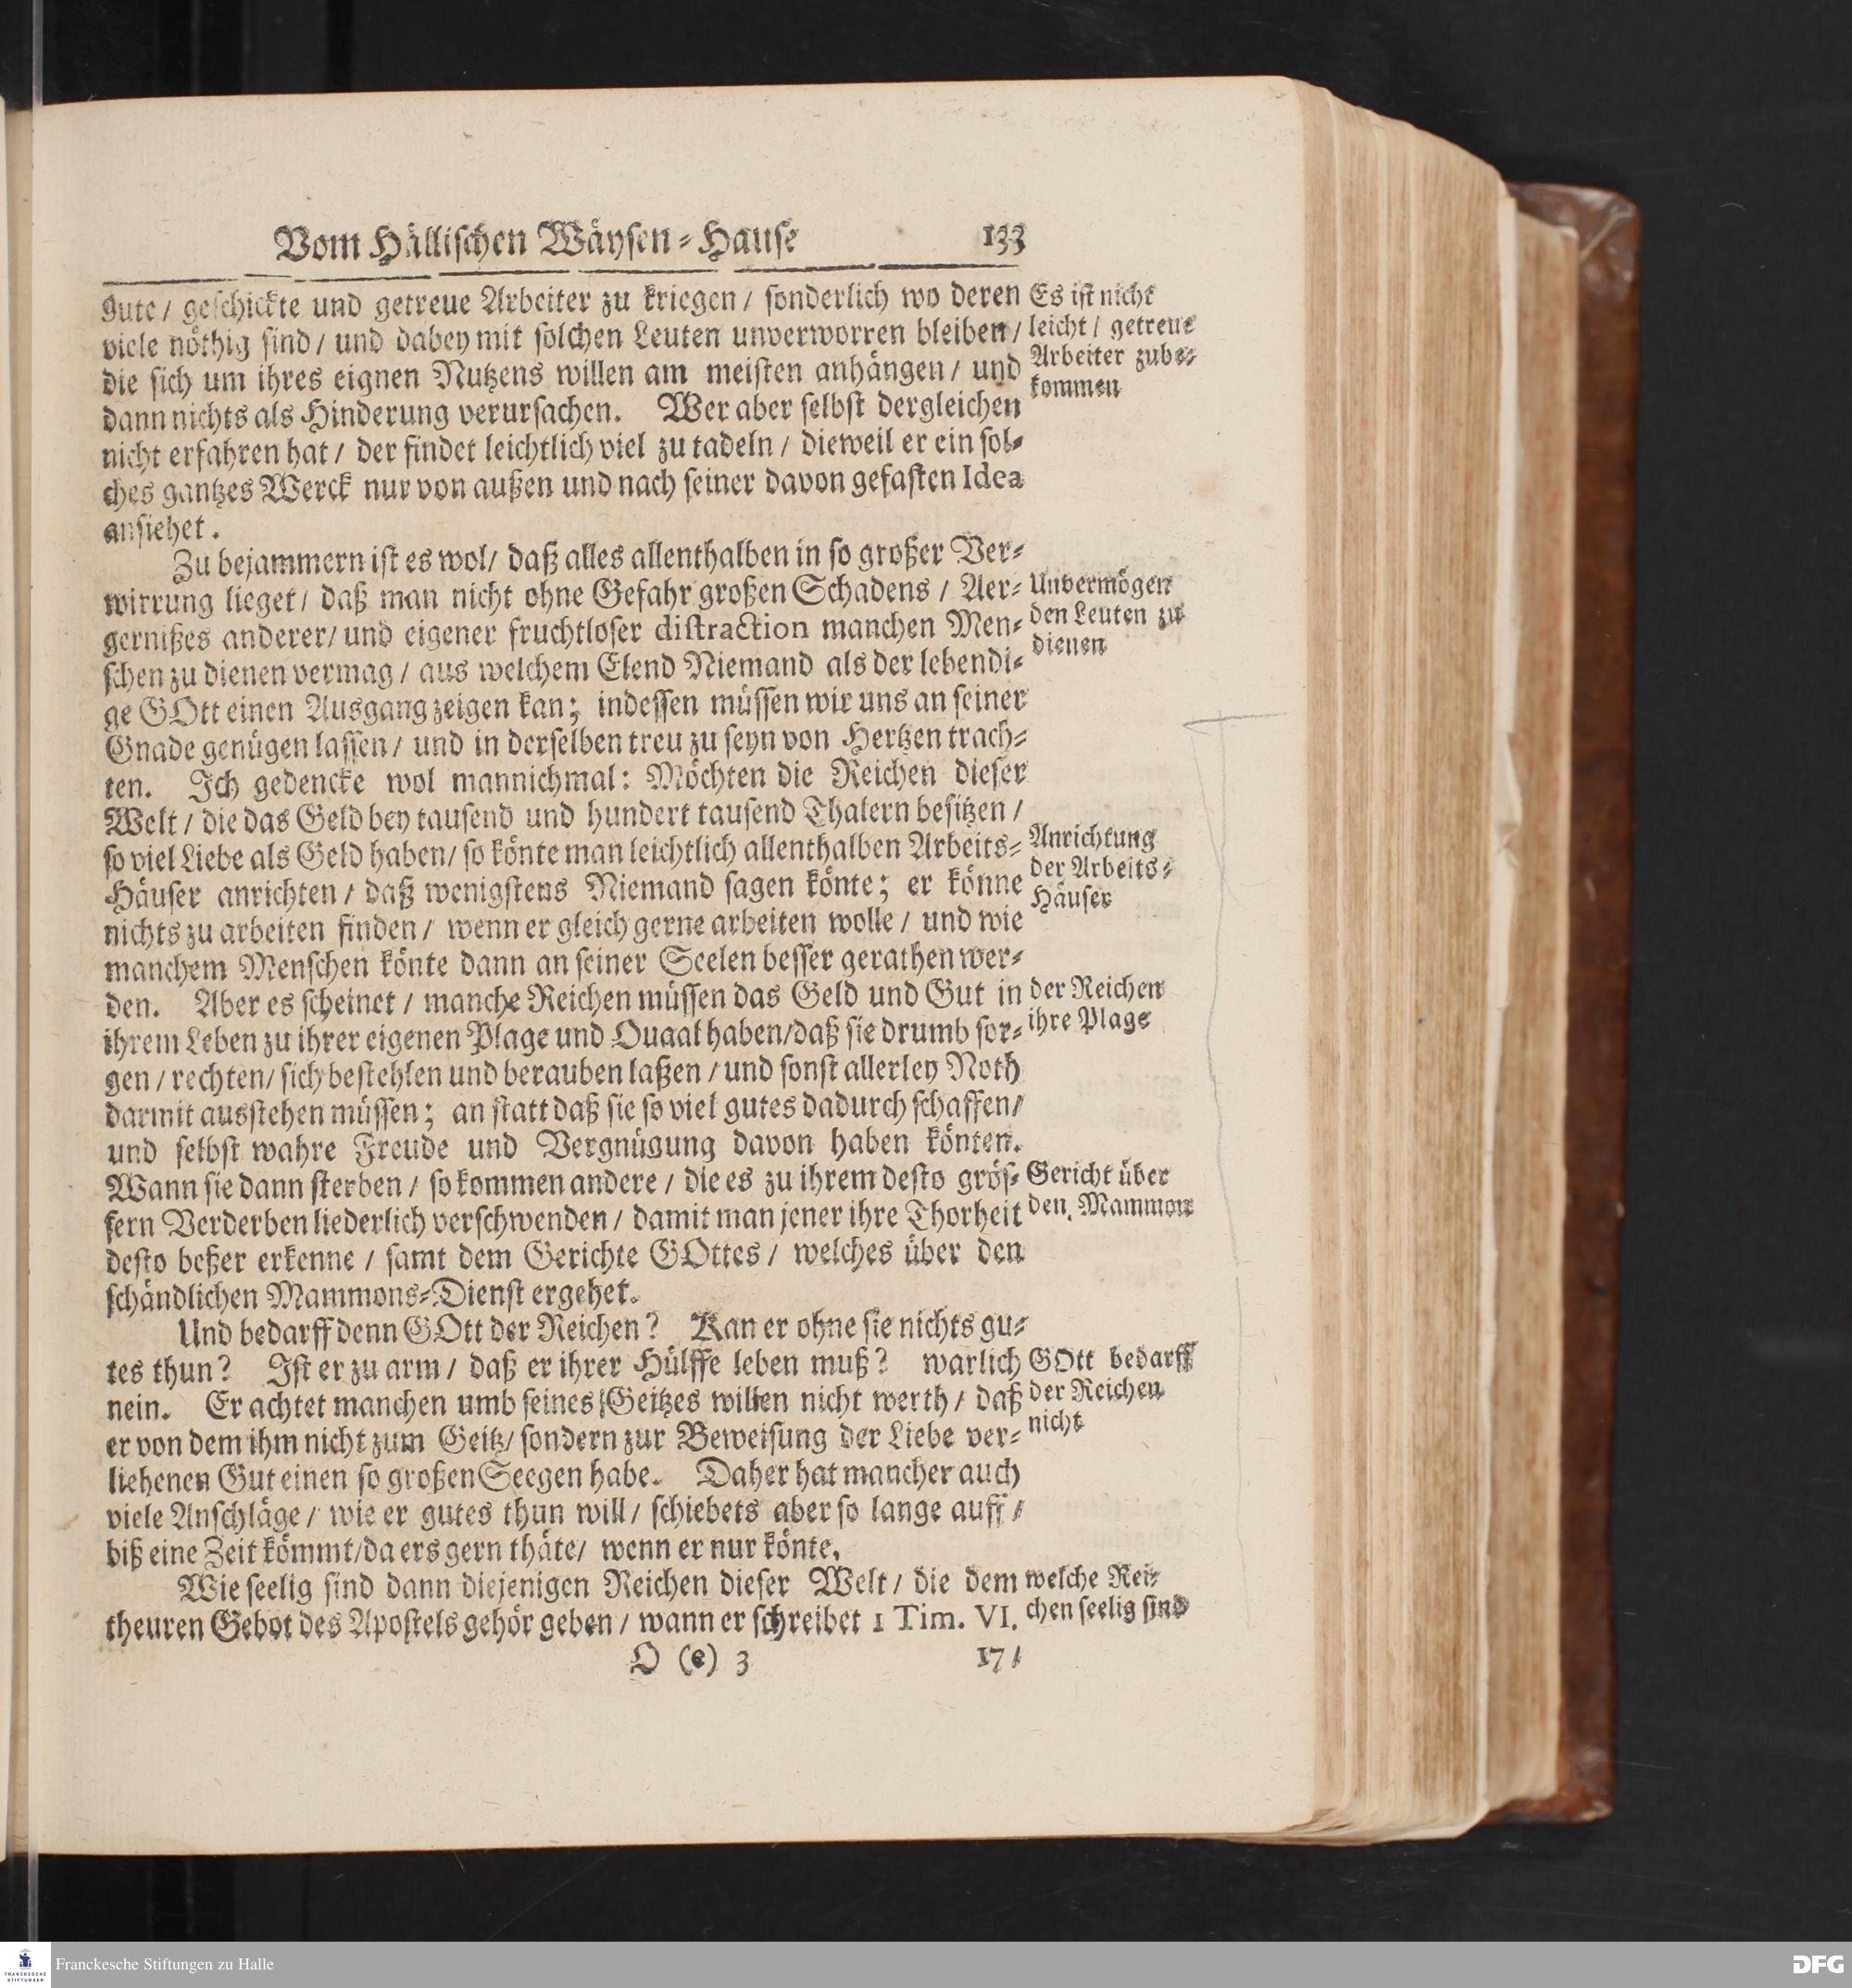 Vom Hällischen Wäysen-Hause 133
gute/ geschickte und getreue Arbeiter zu kriegen/ sonderlich wo deren
viele nöthig sind/ und dabey mit solchen Leuten unverworren bleiben/
die sich um ihres eignen Nutzens willen am meisten anhängen/ und
dann nichts als Hinderung verursachen. Wer aber selbst dergleichen
nicht erfahren hat/ der findet leichtlich viel zu tadeln/ dieweil er ein sol-
ches gantzes Werck nur von außen und nach seiner davon gefasten Idea
ansiehet.
Es ist nicht
leicht/ getreue
Arbeiter zube-
kommen
Zu bejammern ist es wol/ daß alles allenthalben in so großer Ver-
wirrung lieget/ daß man nicht ohne Gefahr großen Schadens/ Aer-
gernißes anderer/ und eigener fruchtloser distraction manchen Men-
schen zu dienen vermag/ aus welchem Elend Niemand als der lebendi-
ge GOtt einen Ausgang zeigen kan; indessen müssen wir uns an seiner
Gnade genügen lassen/ und in derselben treu zu seyn von Hertzen trach-
ten. Ich gedencke wol mannichmal: Möchten die Reichen dieser
Welt/ die das Geld bey tausend und hundert tausend Thalern besitzen/
so viel Liebe als Geld haben/ so könte man leichtlich allenthalben Arbeits-
Häuser anrichten/ daß wenigstens Niemand sagen könte; er könne
nichts zu arbeiten finden/ wenn er gleich gerne arbeiten wolle/ und wie
manchem Menschen könte dann an seiner Seelen besser gerathen wer-
den. Aber es scheinet/ manche Reichen müssen das Geld und Gut in
ihrem Leben zu ihrer eigenen Plage und Quaal haben/ daß sie drumb sor-
gen/ rechten/ sich bestehlen und berauben laßen/ und sonst allerley Noth
darmit ausstehen müssen; an statt daß sie so viel gutes dadurch schaffen/
und selbst wahre Freude und Vergnügung davon haben könten.
Wann sie dann sterben/ so kommen andere/ die es zu ihrem desto grös-
sern Verderben liederlich verschwenden/ damit man jener ihre Thorheit
desto beßer erkenne/ samt dem Gerichte GOttes/ welches über den
schändlichen Mammons-Dienst ergehet.
Unvermögen
den Leuten zu
dienen
Anrichtung
der Arbeits-
Häuser
der Reichen
ihre Plage
Gericht über
den Mammon
Und bedarff denn GOtt der Reichen? Kan er ohne sie nichts gu-
tes thun? Ist er zu arm/ daß er ihrer Hülffe leben muß? warlich
nein. Er achtet manchen umb seines Geitzes willen nicht werth/ daß
er von dem ihm nicht zum Geitz/ sondern zur Beweisung der Liebe ver-
liehenen Gut einen so großen Seegen habe. Daher hat mancher auch
viele Anschläge/ wie er gutes thun will/ schiebets aber so lange auff/
biß eine Zeit kömmt/ da ers gern thäte/ wenn er nur könte.
GOtt bedarff
der Reichen
nicht
Wie seelig sind dann diejenigen Reichen dieser Welt/ die dem
theuren Gebot des Apostels gehör geben/ wann er schreibet 1 Tim. VI.
welche Rei-
chen seelig sind
O (e) 3 17/
FRANCKESCHE
STIFTUNGEN
Franckesche Stiftungen zu Halle
DFG